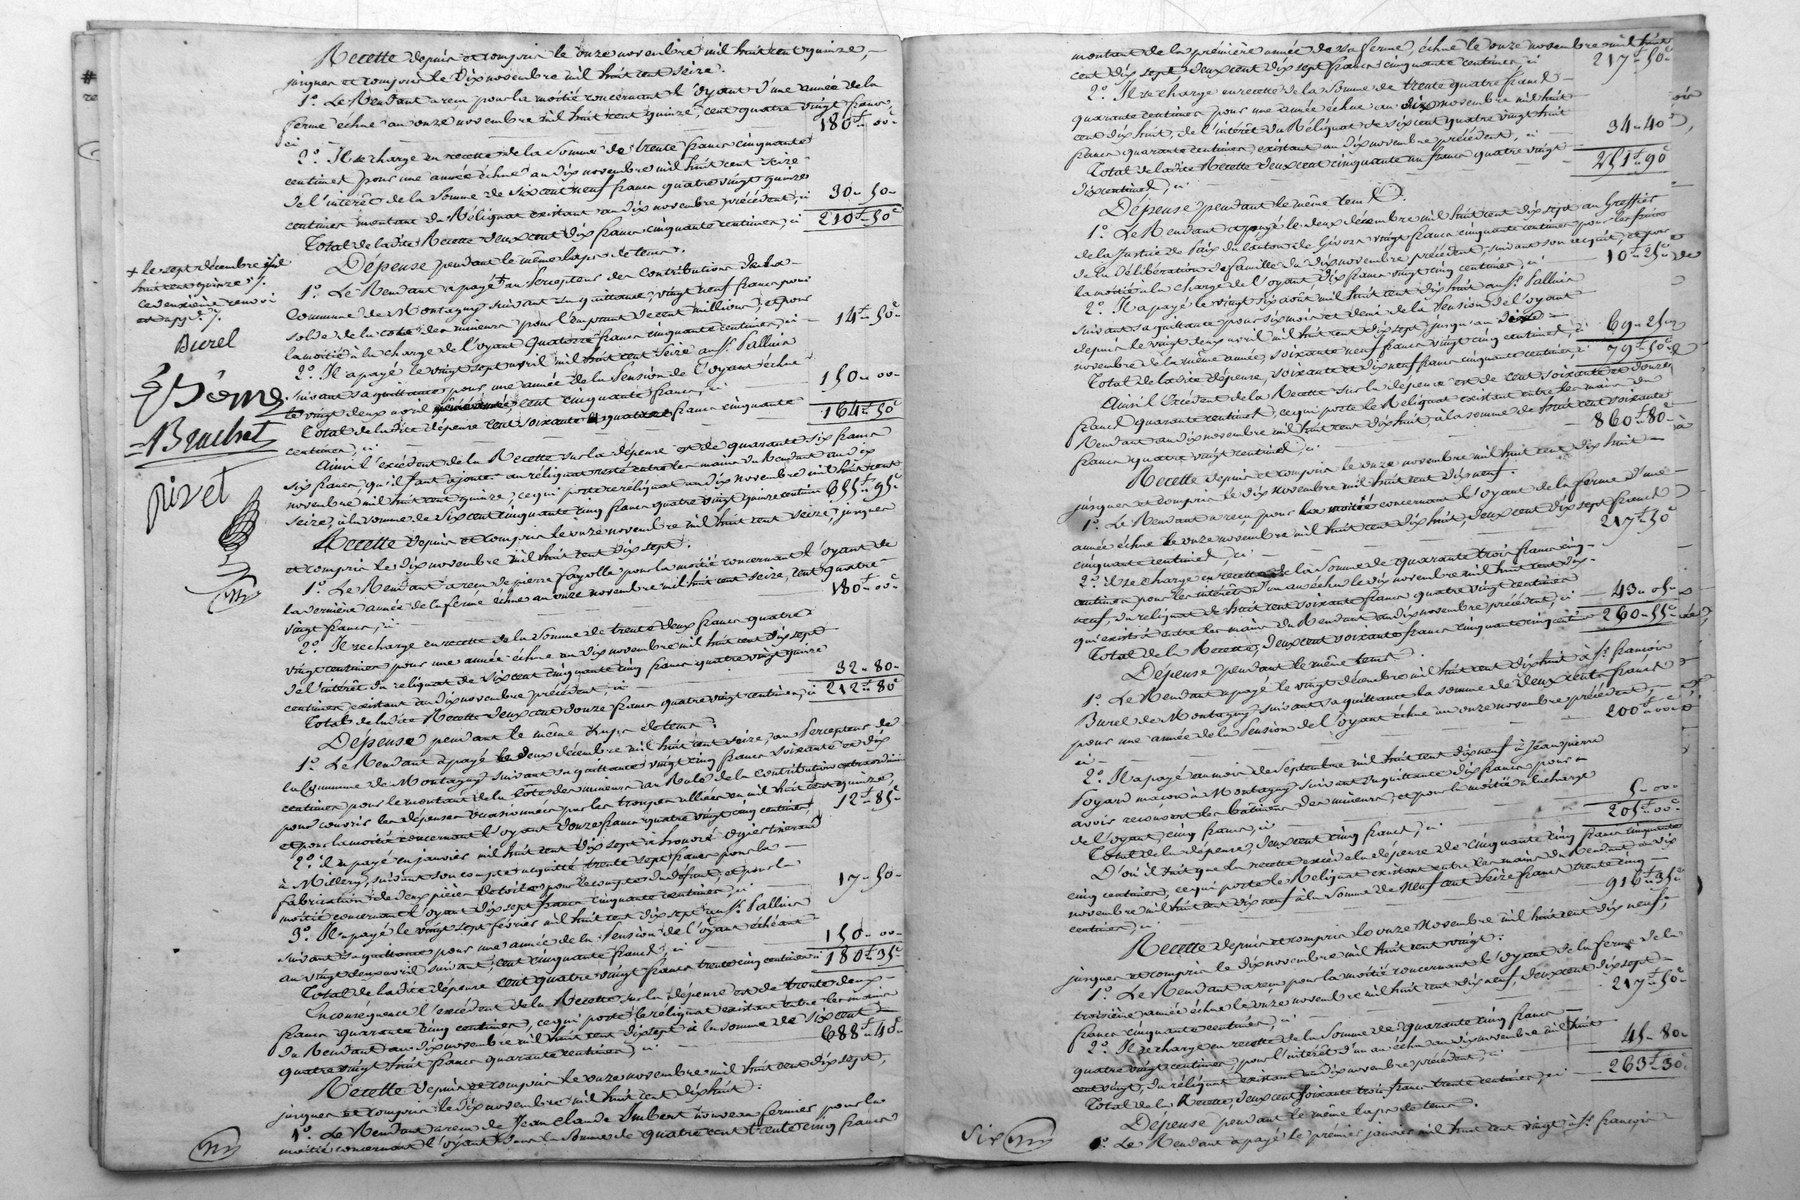 Recette depuis et compris le onze novembre mil huit cent quinze,
jusques et compris le dix novembre mil huit cent seize.
1º. Le Rendant a reçu pour la moitié concernant l'oyant d'une année de la
ferme échue au onze novembre mil huit cent quinze, cent quatre vingt francs
ci 180f 00c
2º. Il se charge en recette de la somme de trente francs cinquante
centimes pour une année échue au dix novembre mil huit cent seize
de l'intérêt de la somme de six cent neuf francs quatre vingt quinze
centimes montant du Réliquat existant au dix novembre précédent, ci 30 - 50 -
Total de ladite Recette deux cent dix francs cinquante centimes, ci 210f 50c
Dépense pendant le même laps de tems.
1º. Le Rendant a payé + au Percepteur des Contributions de la
Commune de Montagny suivant sa quittance, vingt neuf francs pour
solde de la cote des mineurs pour l'emprunt de cent millions, et pour
la moitié à la charge de l'oyant quatorze francs cinquante centimes, ci 14f 50c
2º. Il a payé le vingt sept avril mil huit cent seize au Sr. Palluis
suivant sa quittance pour une année de la Pension de l'oyant échue
le vingt deux avril cent cinquante francs, ci 150 - 00 -
Total de ladite dépense cent soixante quatre francs cinquante 164f 50c
centimes, ci
Ainsi l'excédent de la Recette sur la dépense est de quarante six francs
six francs qu'il faut ajouter au réliquat resté entre les mains du Rendant au dix
novembre mil huit cent quinze, ce qui porte ce réliquat au dix novembre mil huit cent
seize, à la somme de six cent cinquante cinq francs quatre vingt quinze centimes 655f 95c
Recette depuis et compris le onze novembre mil huit cent seize, jusques
et compris le dix novembre mil huit cent dix sept.
1º. Le Rendant a reçu de pierre fayolle pour la moitié concernant l'oyant de
la dernière année de la ferme échue au onze novembre mil huit cent seize, cent quatre
vingt francs, ci 180 - 00c
2º. Il se charge en recette de la Somme de trente deux francs quatre
vingt centimes pour une année échue au dix novembre mil huit cent dix sept
de l'intérêt du reliquat de six cent cinquante cinq francs quatre vingt quinze
centimes existant au dix novembre précédent, ci 32 - 80 -
Total de ladite Recette deux cent douze francs quatre vingt centimes, ci 212f 80c
Dépense pendant le même laps de tems.
1º. Le Rendant a payé le deux décembre mil huit cent seize, au Percepteur de
la Commune de Montagny suivant sa quittance, vingt cinq francs soixante et dix
centimes pour le montant de la cote des mineurs au Role de la Contribution extraordinaire
pour couvrir les dépenses occasionnées par les troupes alliées en mil huit cent quinze,
et pour la moitié concernant l'oyant douze francs quatre vingt cinq centimes, 12f 85c
2º. il a payé en janvier mil huit cent dix sept à
à Millery, suivant son compte acquitté trente cinq francs pour la
fabrication de deux pièces de toiles pour le compte du défunt, et pour la
moitié concernant l'oyant dix sept francs cinquante centimes, ci 17 - 50 -
3º. Il a payé le vingt sept février mil huit cent dix sept au Sr. Palluis
suivant sa quittance pour une année de la Pension de l'oyant échéant
au vingt deux avril suivant, cent cinquante francs, ci 150 - 00 -
Total de ladite dépense cent quatre vingt francs trente cinq centimes 180f 35c
En conséquence l'excédent de la Recette sur la dépense est de trente deux
francs quarante cinq centimes, ce qui porte le réliquat existant entre les mains
du Rendant au dix novembre mil huit cent dix sept à la somme de six cent
quatre vingt huit francs quarante centimes, ci 688f 40c
Recette depuis et compris le onze novembre mil huit cent dix sept,
jusques et compris le dix novembre mil huit cent dix huit.
1º. Le Rendant a reçu de Jean Claude Imbert nouveau fermier pour la
moitié concernant l'oyant dans la somme de quatre cent trente cinq francs
+ le sept décembre mil
huit cent quinze
ce deuxième renvoi
Burel
Bruchet
Rivet
montant de la première année de sa ferme, échue le onze novembre mil huit
cent dix sept, deux cent dix sept francs cinquante centimes, ci 217f 50c
2º. Il se charge en recette de la somme de trente quatre francs
quarante centimes pour une année échue au dix novembre mil huit
cent dix huit, de l'intérêt du Réliquat de six cent quatre vingt huit
francs quarante centimes existant au dix novembre précédent, ci 34 - 40c
Total de ladite Recette deux cent cinquante un francs quatre vingt 251f 90c
dix centimes, ci
Dépense pendant le même tems.
1º. Le Rendant a payé le deux décembre mil huit cent dix sept au Greffier
de la Justice de Paix du Canton de Givors vingt francs cinquante centimes pour les frais
de la Délibération de famille du dix novembre précédent, suivant son récépissé, et pour
la moitié à la charge de l'oyant, dix francs vingt cinq centimes, ci 10 - 25c
2º. Il a payé le vingt six août mil huit cent dix huit au Sr. Palluis
suivant sa quittance pour six mois et demi de la Pension de l'oyant
depuis le vingt deux avril mil huit cent dix sept jusqu'au dix
novembre de la même année, soixante neuf francs vingt cinq centimes, ci 69 - 25
Total de ladite dépense, soixante et dix neuf francs cinquante centimes, ci 79f 50c
Ainsi l'Excédent de la Recette sur la dépense est de cent soixante et douze
francs quarante centimes, ce qui porte le Réliquat existant entre les mains du
Rendant au dix novembre mil huit cent dix huit, à la somme de huit cent soixante
francs quatre vingt centimes, ci 860f 80c
Recette depuis et compris le onze novembre mil huit cent dix huit
jusques et compris le dix novembre mil huit cent dix neuf.
1º. Le Rendant a reçu pour la moitié concernant l'oyant de la ferme d'une
année échue le onze novembre mil huit cent dix huit, deux cent dix sept francs
cinquante centimes, ci 217f 50c
2º. il se charge en recette de la Somme de quarante trois francs cinq
centimes pour les intérêts d'un an échu le dix novembre mil huit cent dix
neuf, du reliquat de huit cent soixante francs quatre vingt centimes
qui existoit entre les mains du Rendant au dix novembre précédent, ci 43 - 05 -
Total de la Recette, deux cent soixante francs cinquante cinq centimes 260 - 55c
Dépense pendant le même tems.
1º. Le Rendant a payé le vingt décembre mil huit cent dix huit à Sr. françois
Burel de Montagny suivant sa quittance la somme de deux cents francs
pour une année de la Pension de l'oyant échue au onze novembre précédent,
ci 200 - 00
2º. Il a payé au mois de Septembre mil huit cent dix neuf à Jean pierre
Poyard macon à Montagny suivant sa quittance dix francs pour
avoir recouvert les bâtimens des mineurs, et pour la moitié à la charge
de l'oyant, cinq francs, ci 5 - 00 -
Total de la dépense, deux cent cinq francs, ci 205f 00c
D'où il suit que la recette excède la dépense de cinquante cinq francs cinquante
cinq centimes, ce qui porte le Réliquat existant entre les mains du Rendant au dix
novembre mil huit cent dix neuf à la somme de Neuf cent seize francs trente cinq
centimes, ci 916f 35c
Recette depuis et compris le onze Novembre mil huit cent dix neuf,
jusques et compris le dix novembre mil huit cent vingt.
1º. Le Rendant a reçu pour la moitié concernant l'oyant de la ferme de la
troisième année échue le onze novembre mil huit cent dix neuf, deux cent dix sept
francs cinquante centimes, ci 217f 50c
2º. Il se charge en recette de la Somme de quarante cinq francs
quatre vingt centimes, pour l'intérêt d'un an échu au dix novembre mil huit
cent vingt, du réliquat existant au dix novembre précédent, ci 45 - 80 -
Total de la Recette, deux cent soixante trois francs trente centimes, ci 263f 30c
Dépense pendant le même laps de tems.
1º. Le Rendant a payé le premier janvier mil huit cent vingt à Sr. françois
Six